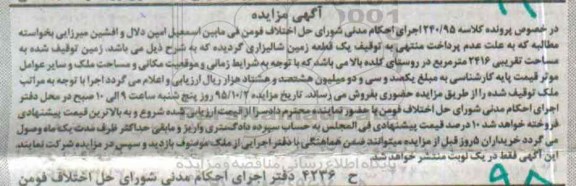 آگهی مزایده
در خصوص پرونده کلاسه ۲۴۰/۹۵ اجرای احکام مدنی شورای حل اختلاف فومن فی مابین اسمعیل امین دلال و افشین میرزایی بخواسته
مطالبه که به علت عدم پرداخت منتهی به توقیف یک قطعه زمین شالیزاری گردیده که به شرح ذیل می باشد. زمین توقیف شده به
مساحت تقریبی ۲۴۱۶ مترمربع در روستای کلده بالا می باشد که با توجه به شرایط زمانی و موقعیت مکانی و مساحت ملک و سایر عوامل
موثر قیمت پایه کارشناسی به مبلغ یکصد و سی و دو میلیون هشتصد و هشتاد هزار ریال ارزیابی و اعلام می گردد اجرا با توجه به مراتب
ملک توقیف شده را از طریق مزایده حضوری بفروش می رساند. تاریخ مزایده ۹۵/۱۰/۲ روز پنج شنبه ساعت ۹ الی ۱۰ صبح در محل دفتر
اجرای احکام مدنی شورای حل اختلاف فومن با حضور نماینده محترم دادسرا از قیمت ارزیابی شده شروع و به بالاترین قیمت پیشنهادی
فروخته خواهد شد ۱۰ درصد قیمت پیشنهادی فی المجلس به حساب سپرده دادگستری واریز و مابقی حداکثر ظرف مدت یک ماه وصول
می گردد خریداران ۵ روز قبل از مزایده میتوانند ضمن هماهنگی با دفتر اجرایی از ملک موصوف بازدید و سپس در مزایده شرکت نمایند.
این آگهی فقط در یک نوبت منتشر خواهد شد.
ح ۴۲۳۶ دفتر اجرای احکام مدنی شورای حل اختلاف فومن